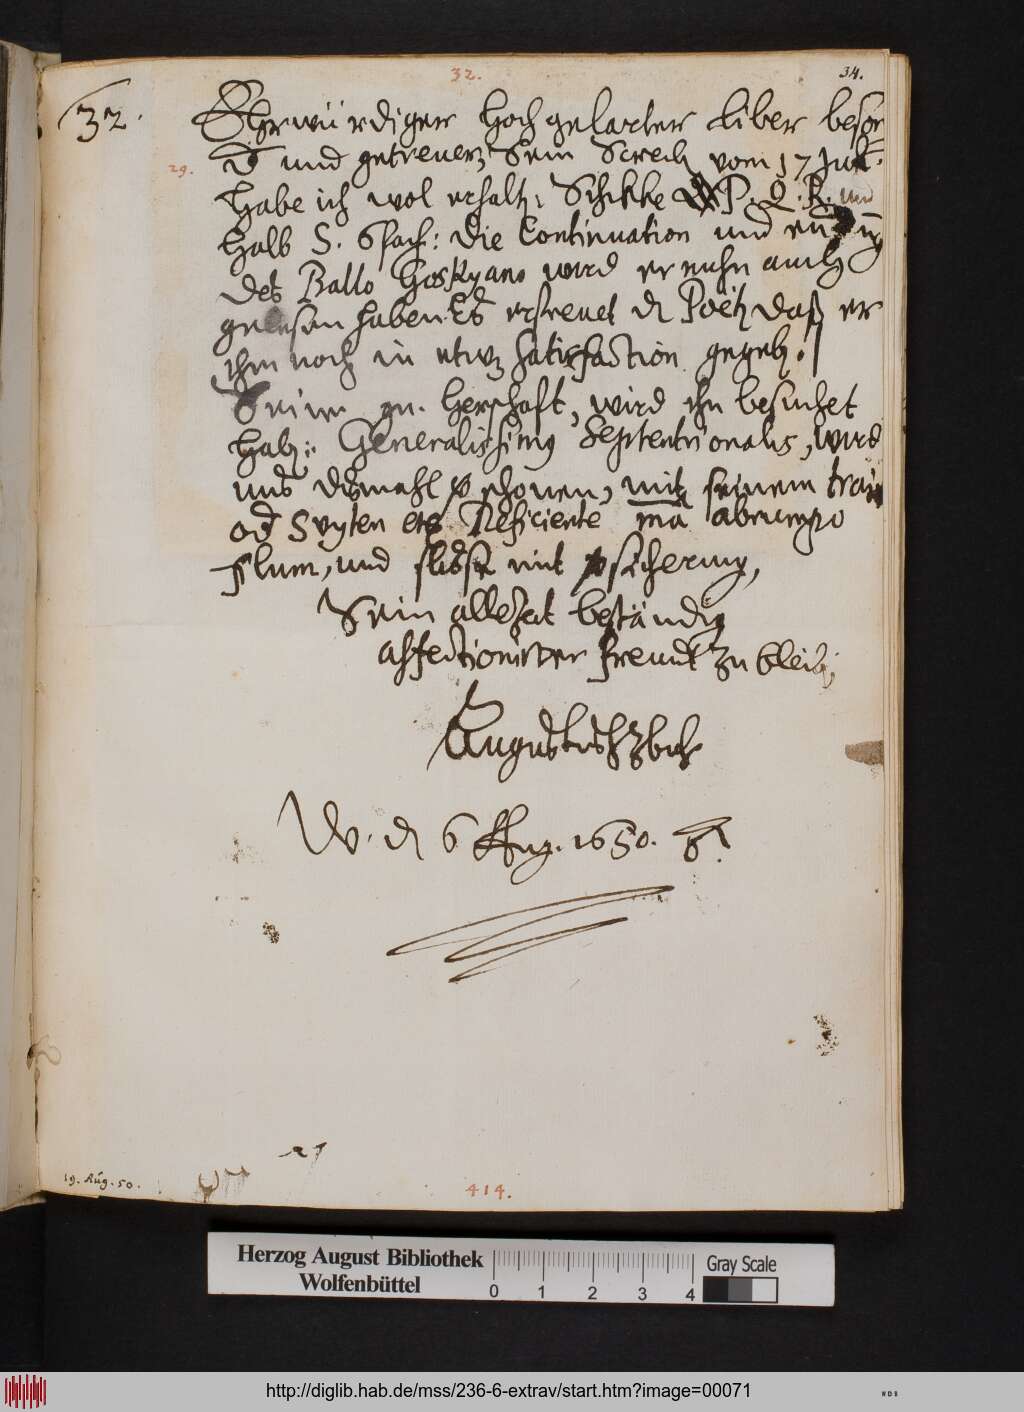 32.
34.
32.
Ehrwürdiger Hochgelarter liber besor
29.
und getreuer, Sein Screib vom 17 Jul.
habe ich wol erhalt; Schikke P. Q. R. und
halb S. Spach: die Continuation und
des Ballo wird er nuhn auch
gelesen haben. Es erfreuet d Poët, daß er
ihm noch in etwz satisfaction gegeb.
Seine gn. Herschaft, wird ihn besuchet
hab: Generalissimus Septentrionalis, wird
uns dismahl schonen, mit seinem
od Suyten etc. Deficiente abrumpo
filum, und mit sicherung,
Sein allezeit beständig
affectionirter freundt zu bleib;
Augustus HzBuL
W. d 6 Aug. 1650.
19. Aug. 50.
414.
Herzog August Bibliothek
Wolfenbüttel
0 1 2 3 4
Gray Scale
http://diglib.hab.de/mss/236-6-extrav/start.htm?image=00071
WDB